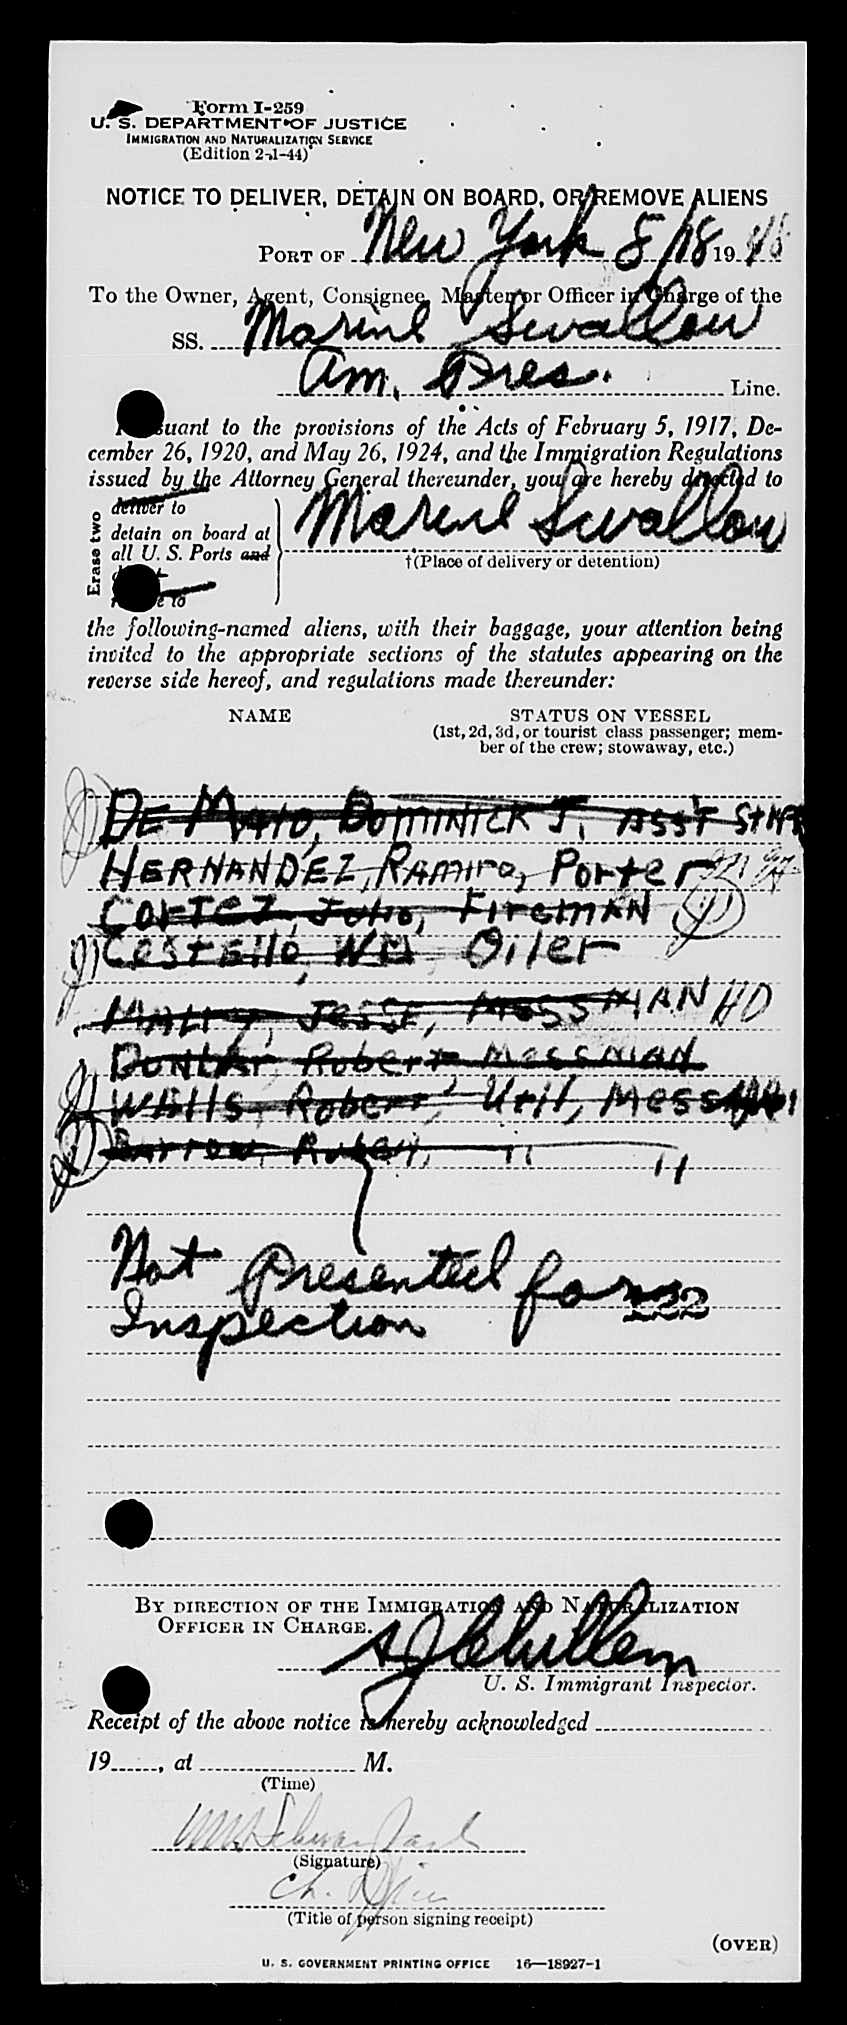 Form I-259
U. S. DEPARTMENT OF JUSTICE
IMMIGRATION AND NATURALIZATION SERVICE
(Edition 2-1-44)
NOTICE TO DELIVER, DETAIN ON BOARD, OR REMOVE ALIENS
PORT OF New York 8/18 19 48
To the Owner, Agent, Consignee, Master or Officer in Charge of the
SS. Marine Swallow
Am. Pres. Line.
Pursuant to the provisions of the Acts of February 5, 1917, De-
cember 26, 1920, and May 26, 1924, and the Immigration Regulations
issued by the Attorney General thereunder, you are hereby directed to
Erase two
deliver to
detain on board at
all U. S. Ports and
remove to
Marine Swallow
†(Place of delivery or detention)
the following-named aliens, with their baggage, your attention being
invited to the appropriate sections of the statutes appearing on the
reverse side hereof, and regulations made thereunder:
NAME STATUS ON VESSEL
(1st, 2d, 3d, or tourist class passenger; mem-
ber of the crew; stowaway, etc.)
DE MAIO, DOMINICK J. ASS'T
HERNANDEZ, RAMIRO, Porter
CORTEZ, Julio, FIREMAN
COSTELLO, WM, Oiler
Jesse, MESSMAN HD
DUNLAP, Robert MESSMAN
WALLS, Robert, Util, MESSMAN
" "
Not Presented for
Inspection
122
BY DIRECTION OF THE IMMIGRATION AND NATURALIZATION
OFFICER IN CHARGE.
U. S. Immigrant Inspector.
Receipt of the above notice is hereby acknowledged
19 , at M.
(Time)
(Signature)
Ch.
(Title of person signing receipt)
(OVER)
U. S. GOVERNMENT PRINTING OFFICE 16—18927-1